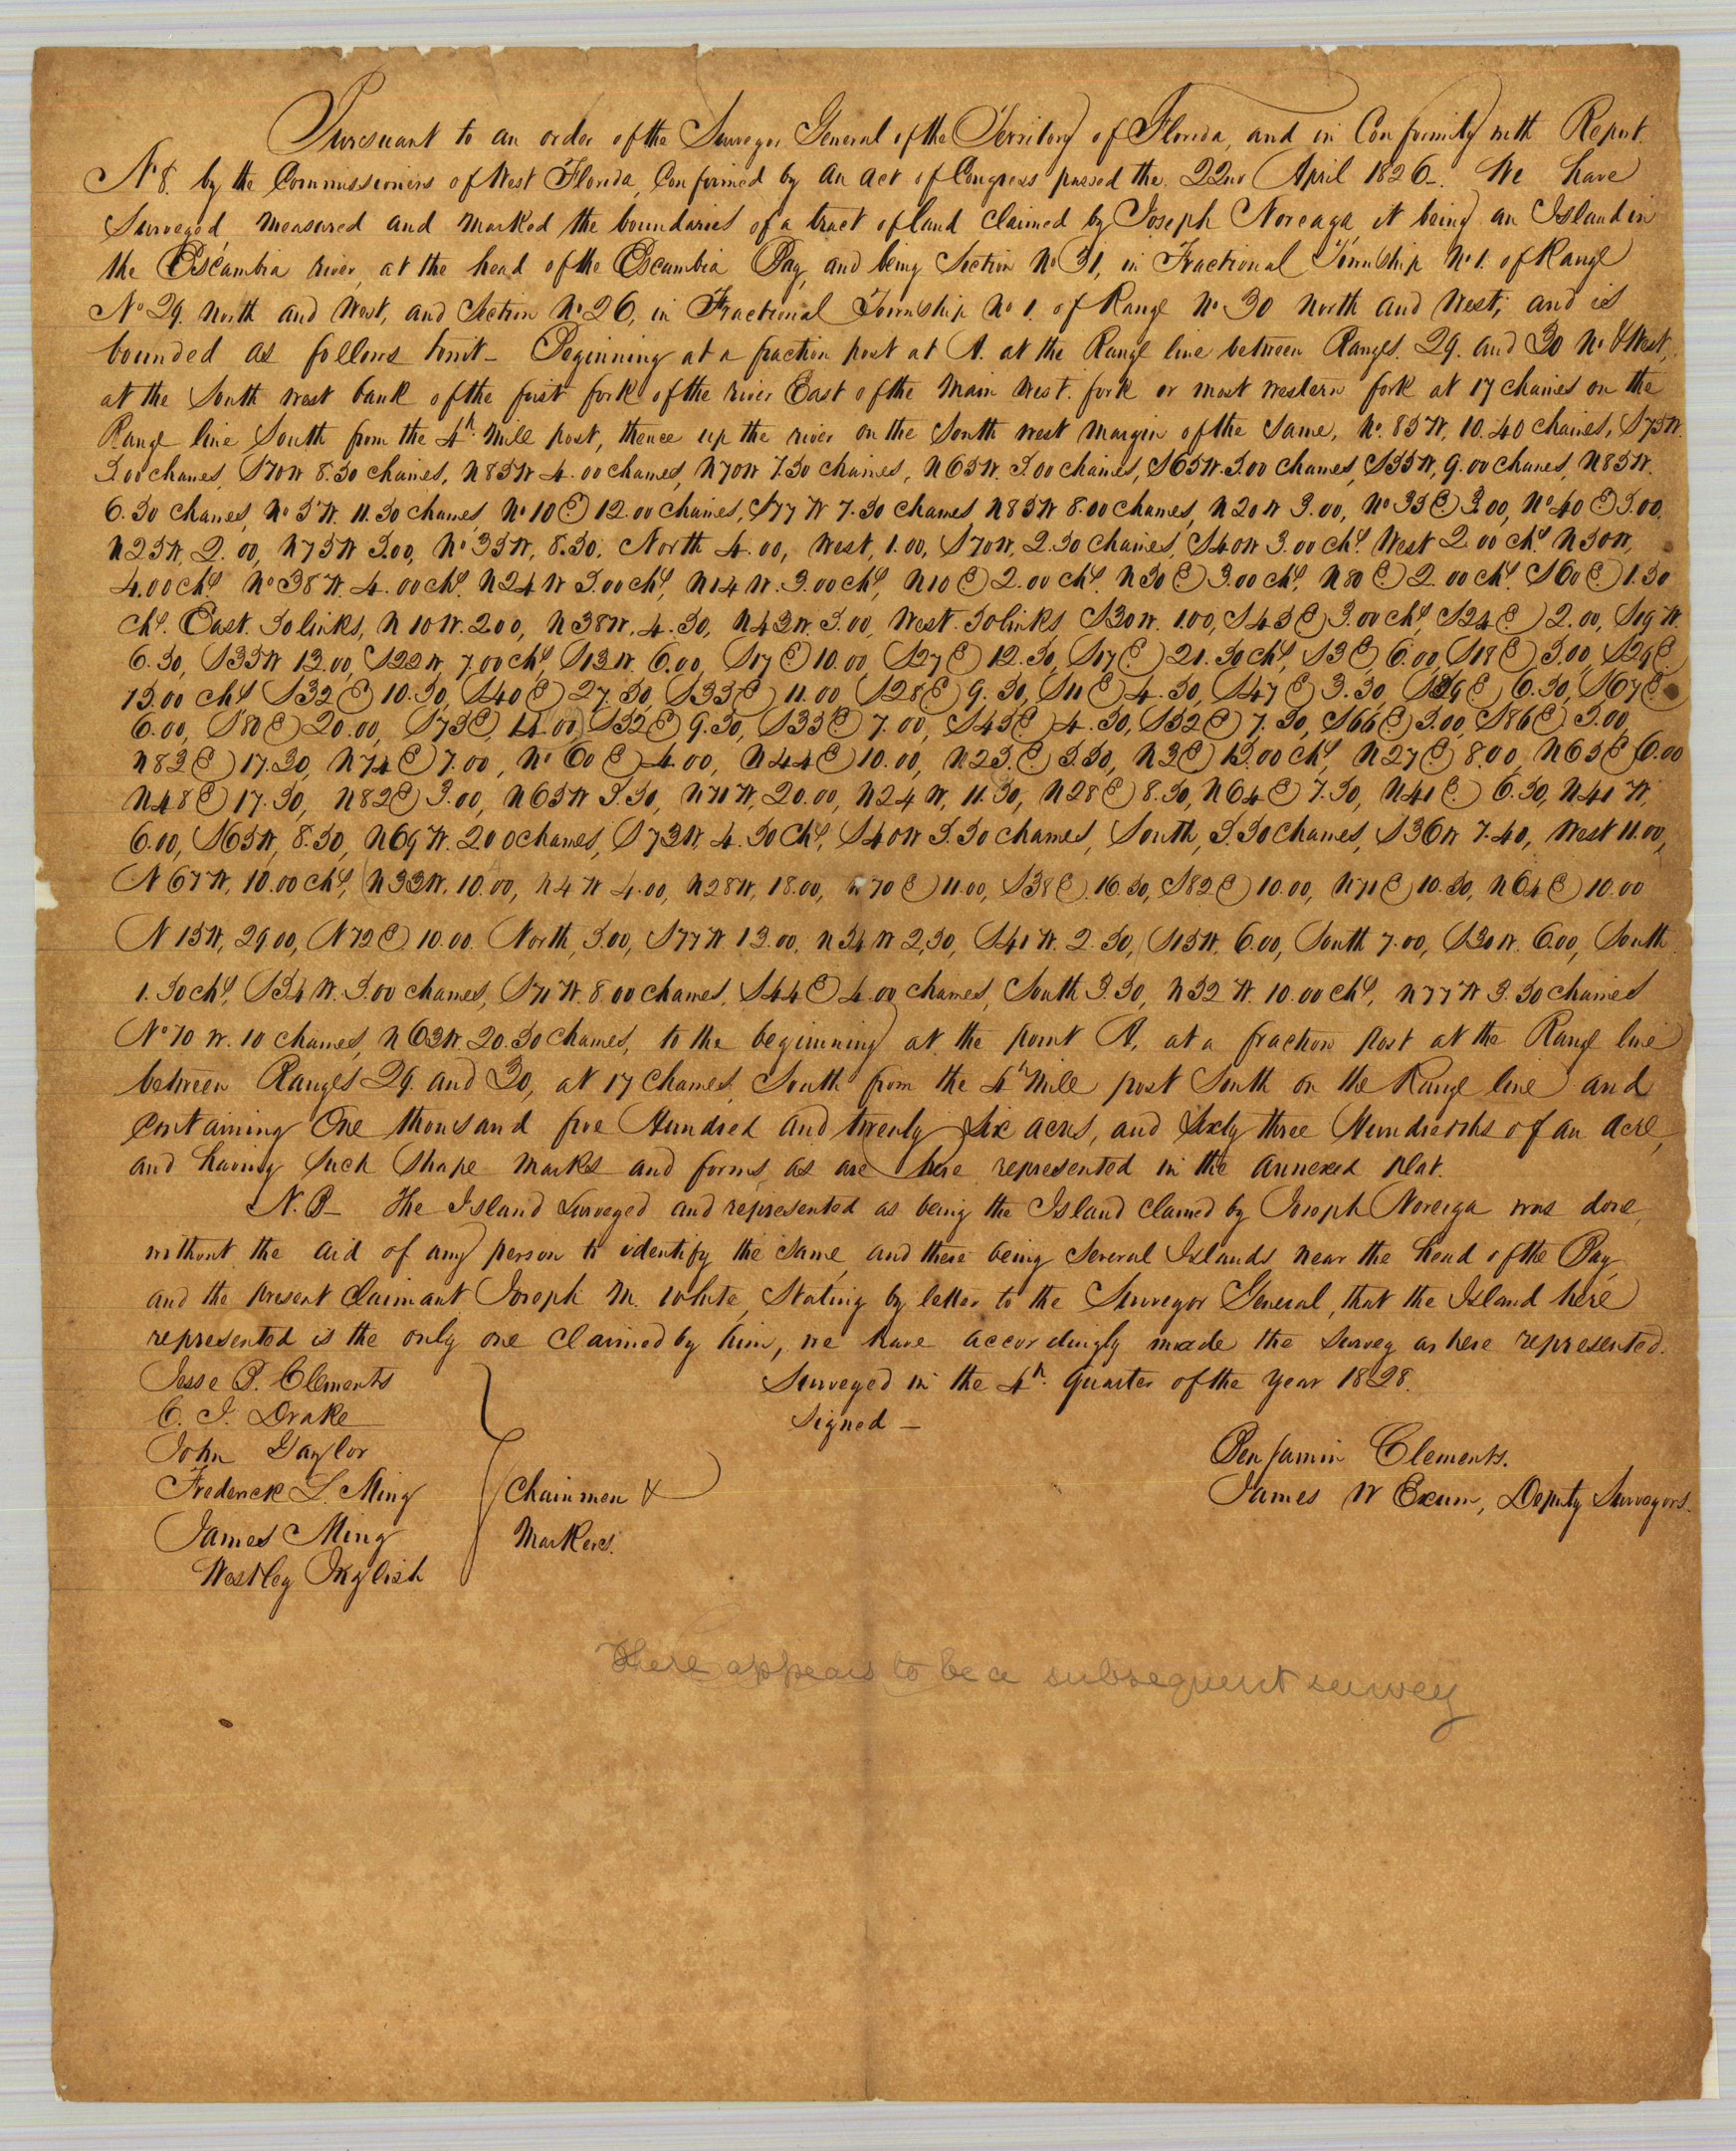 Pursuant to an order of the Surveyor General of the Territory of Florida, and in Conformity with Report
No 8. by the Commissioners of West Florida, Confirmed by an act of Congress passed the 22nd April 1826_. We have
Surveyed measured and marked the boundaries of a tract of land claimed by Joseph Noreaga, it being an Island in
the Escambia river, at the head of the Escambia Bay, and being Section No 31, in Fractional Township No 1. of Range
No 29. North and West, and Section No 26, in Fractional Township No 1. of Range No 30 North and West, and is
bounded as follows towit_ Beginning at a fraction post at A. at the Range line between Ranges. 29. and 30 No & West,
at the South west bank of the first fork of the river East of the Main West. fork or most western fork at 17 chaines on the
Range line South from the 4th Mile post, thence up the river on the South west Margin of the same, No. 85 W, 10.40 chaines, S75W.
5.00 chaines, S70W 8.50 chaines, N85W 4.00 chaines, N70W 7.50 chaines, N65W. 5.00 chaines, S65W. 5.00 chaines, S35W, 9.00 chaines, N85W.
6.50 chaines, No 5W. 11.50 chaines, No 10 E 12.00 chaines, S77W 7.50 chaines N85W 8.00 chaines, N20W 3.00, No 35 E 3.00, No 40 E 5.00,
N25W, 2.00, N75W 5.00, No 35W, 8.50, North 4.00, West, 1.00, S70W, 2.50 chaines, S40W 3.00 chs. West 2.00 chs. N50W,
4.00 chs, No 38W. 4.00 chs, N24W 5.00 chs, N14W. 3.00 chs, N10 E 2.00 chs. N30 E 3.00 chs, N80 E 2.00 chs. S60 E 1.50
chs. East. 50 links, N10W. 200, N38W, 4.50, N43W. 5.00, West. 50 links S30W. 1.00, S45 E 3.00 chs, S24 E 2.00, S19W.
6.50, S35W 13.00, S22W, 7.00 chs, S13W, 6.00, S17 E 10.00, S27 E 12.50, S17 E 21.50 chs, S3 E 6.00, S18 E 5.00, S29 E
15.00 chs S32 E 10.50, S40 E 27.50, S33 E 11.00 S28 E 9.50, S11 E 4.50, S47 E 3.50, S29 E 6.50, S67 E
6.00, S80 E 20.00, S73 E, 11.00, S52 E 9.50, S35 E 7.00, S45 E 4.50, S52 E 7.50, S66 E 5.00, S86 E 5.00,
N83 E 17.50, N74 E 7.00, No 60 E 4.00, N44 E 10.00, N25. E 5.50, N3 E 15.00 chs, N27 E 8.00, N65 E 6.00
N48 E 17.50, N82 E 3.00, N65W 5.50, N71W, 20.00, N24W, 11.50, N28 E 8.50, N64 E 7.50, N41 E 6.50, N41W,
6.00, S65W, 8.50, N69W. 2.00 chaines, S73W, 4.50 chs, S40W 5.50 chaines, South, 5.50 chaines, S36W 7.40, West 11.00,
N67W, 10.00 chs, N33W, 10.00, N4W 4.00, N28W, 18.00, N70 E 11.00, S38 E 16.50, S82 E 10.00, N71 E 10.50, N64 E 10.00
N15W, 29.00, N72 E 10.00. North, 5.00, S77W. 13.00, N34W 2,50, S41W. 2.50, S15W. 6.00, South 7.00, S30W. 6.00, South
1.50 chs, S34W. 5.00 chaines, S71W. 8.00 chaines, S44 E 4.00 chaines, South 3.50, N32W. 10.00 chs, N77W 3.50 chaines
No 70 W. 10 chaines, N63W. 20.50 chaines, to the beginning at the point A, at a fraction post at the Range line
between Ranges 29. and 30, at 17 chaines, South from the 4th Mile post South on the Range line and
Containing One thousand five Hundred and twenty six acres, and Sixty three Hundredths of an acre,
and having such shape marks and forms, as are here represented in the annexed plat.
N.B_ The Island surveyed and represented as being the Island claimed by Joseph Noreiga was done,
without the aid of any person to identify the same, and there being Several Islands near the head of the Bay,
and the present Claimant Joseph M. White, Stating by letter to the Surveyor General, that the Island here
represented is the only one Claimed by him, we have accordingly made the survey as here represented.
Surveyed in the 4th. quarter of the year 1828.
Signed _
Jesse B. Clements
C. J. Drake
John Gaylor
Frederick L. Ming
James Ming
Westley Inglish
Chainmen &
Markers.
Benjamin Clements.
James W Exum, Deputy Surveyors.
There appears to be a subsequent survey